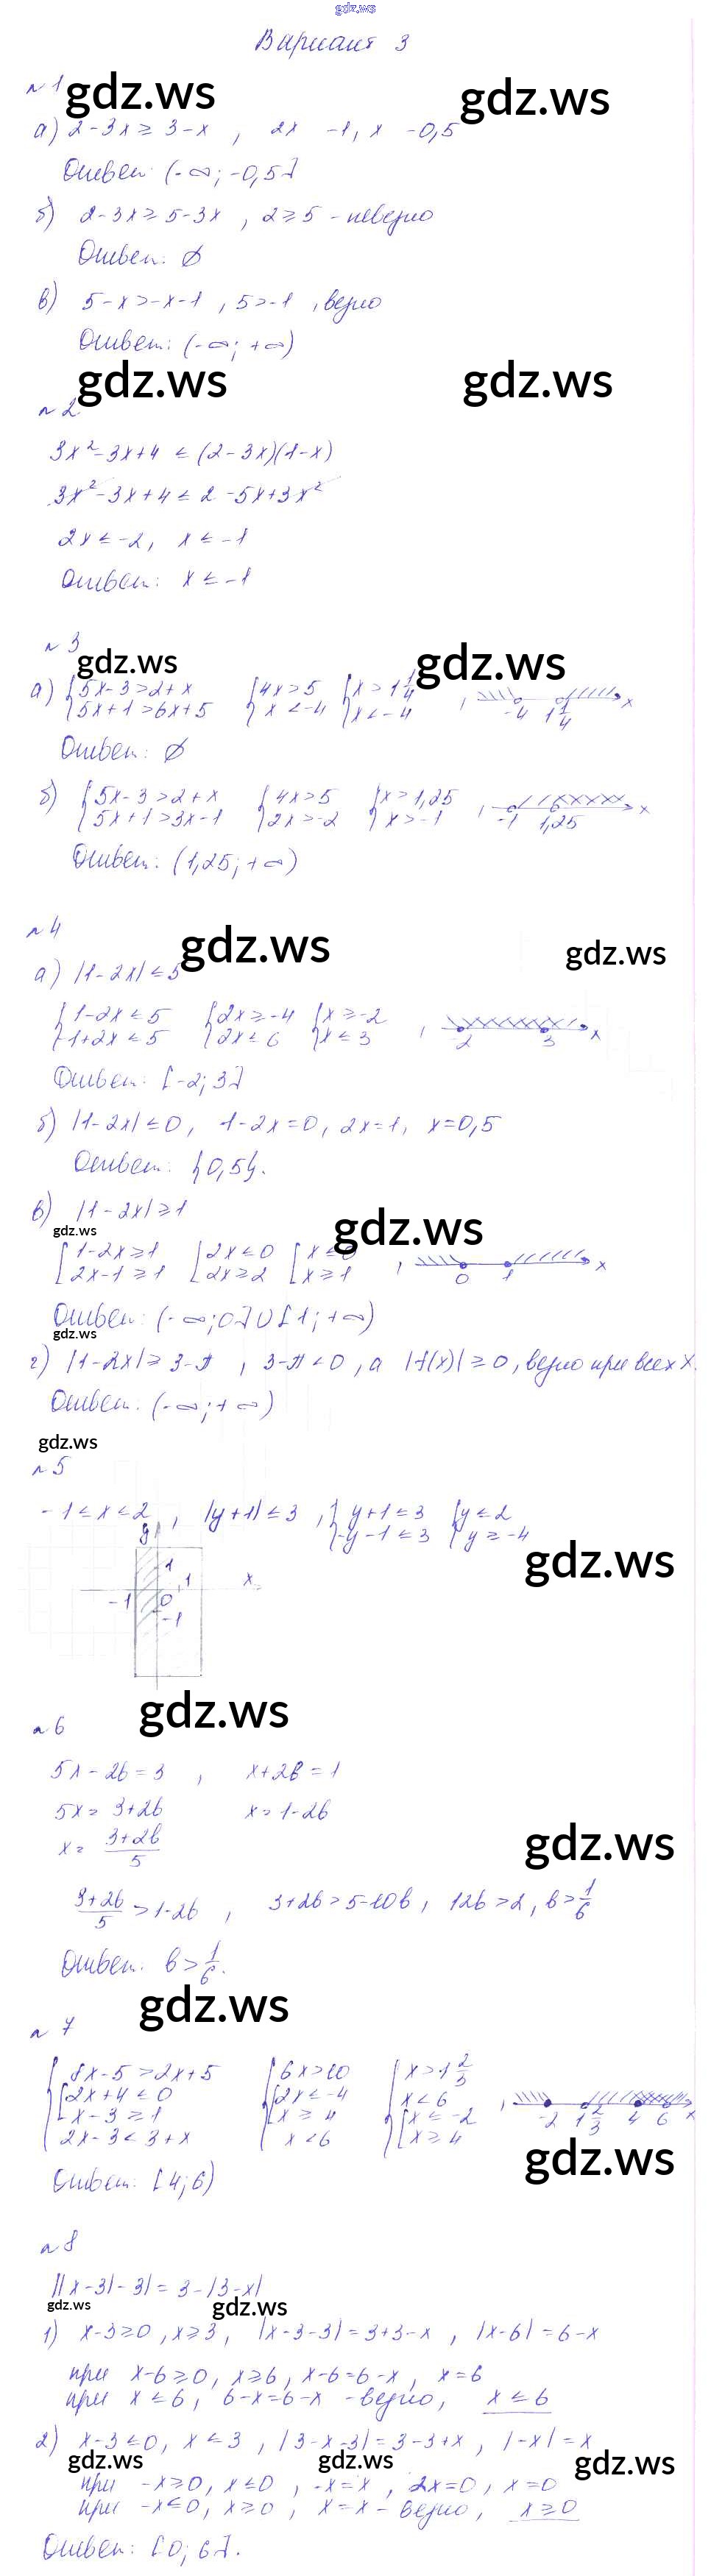 gdz.ws
Вариант 3
№1 gdz.ws gdz.ws
а) 2-3x ≥ 3-x , 2x -1, x -0,5
Ответ: (-∞; -0,5]
б) 2-3x ≥ 5-3x , 2 ≥ 5 - неверно
Ответ: ∅
в) 5-x > -x-1 , 5 > -1 , верно
Ответ: (-∞; +∞)
gdz.ws gdz.ws
№2
3x²-3x+4 ≤ (2-3x)(1-x)
3x²-3x+4 ≤ 2-5x+3x²
2x ≤ -2, x ≤ -1
Ответ: x ≤ -1
№3
gdz.ws gdz.ws
а) {5x-3>2+x {4x>5 {x>1 1/4
5x+1>6x+5 x<-4 x<-4 , -4 1 1/4 x
Ответ: ∅
б) {5x-3>2+x {4x>5 {x>1,25
5x+1>3x-1 2x>-2 x>-1 , -1 1,25 x
Ответ: (1,25; +∞)
№4 gdz.ws gdz.ws
а) |1-2x| ≤ 5
{1-2x ≤ 5 {2x ≥ -4 {x ≥ -2
-1+2x ≤ 5 2x ≤ 6 x ≤ 3 , -2 3 x
Ответ: [-2; 3]
б) |1-2x| ≤ 0, 1-2x=0, 2x=1, x=0,5
Ответ: {0,5}.
в) |1-2x| ≥ 1
gdz.ws gdz.ws
[1-2x ≥ 1 [2x ≤ 0 [x ≤ 0
2x-1 ≥ 1 2x ≥ 2 x ≥ 1 , 0 1 x
Ответ: (-∞; 0] ∪ [1; +∞)
gdz.ws
г) |1-2x| ≥ 3-π , 3-π < 0 , а |f(x)| ≥ 0, верно при всех x.
Ответ: (-∞; +∞)
gdz.ws
№5
-1 ≤ x ≤ 2 , |y+1| ≤ 3 , {y+1 ≤ 3 {y ≤ 2
-y-1 ≤ 3 y ≥ -4
gdz.ws
y
1
1 x
-1 0
-1
gdz.ws
№6
5x-2b=3 , x+2b=1
5x= 3+2b x=1-2b
x= 3+2b/5
gdz.ws
3+2b/5 > 1-2b , 3+2b > 5-10b, 12b > 2, b > 1/6
Ответ: b > 1/6.
gdz.ws
№7
{8x-5 > 2x+5 {6x>10 {x > 1 2/3
[2x+4 ≤ 0 [2x ≤ -4 x < 6
x-3 ≥ 1 x ≥ 4 [x ≤ -2
2x-3 < 3+x x < 6 x ≥ 4 , -2 1 2/3 4 6 x
gdz.ws
Ответ: [4; 6)
№8
||x-3|-3| = 3-|3-x|
gdz.ws gdz.ws
1) x-3 ≥ 0, x ≥ 3, |x-3-3| = 3+3-x , |x-6| = 6-x
при x-6 ≥ 0, x ≥ 6, x-6=6-x, x=6
при x ≤ 6, 6-x=6-x - верно, x ≤ 6
2) x-3 ≤ 0, x ≤ 3 , |3-x-3| = 3-3+x , |-x| = x
gdz.ws gdz.ws gdz.ws
при -x ≥ 0, x ≤ 0 , -x=x , 2x=0, x=0
при -x ≤ 0, x ≥ 0 , x=x - верно, x ≥ 0
Ответ: [0; 6].